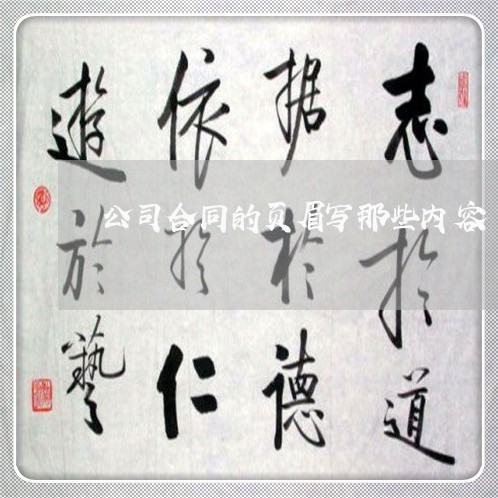 志於道
据於德
依於仁
遊於藝
公司合同的页眉写那些内容